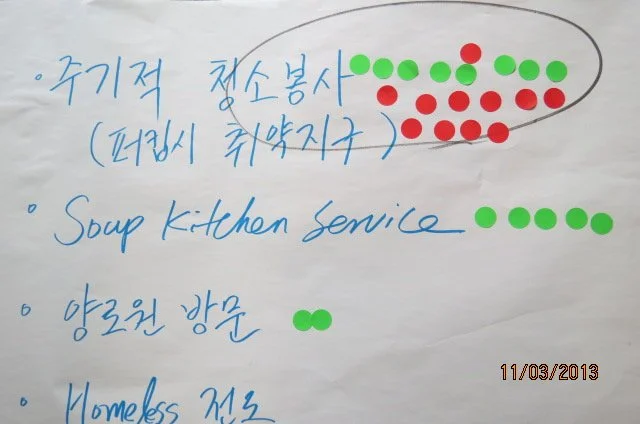 · 주기적 청소봉사
(퍼킵시 취약지구)
° Soup Kitchen Service
° 양로원 방문
° Homeless 전도
11/03/2013